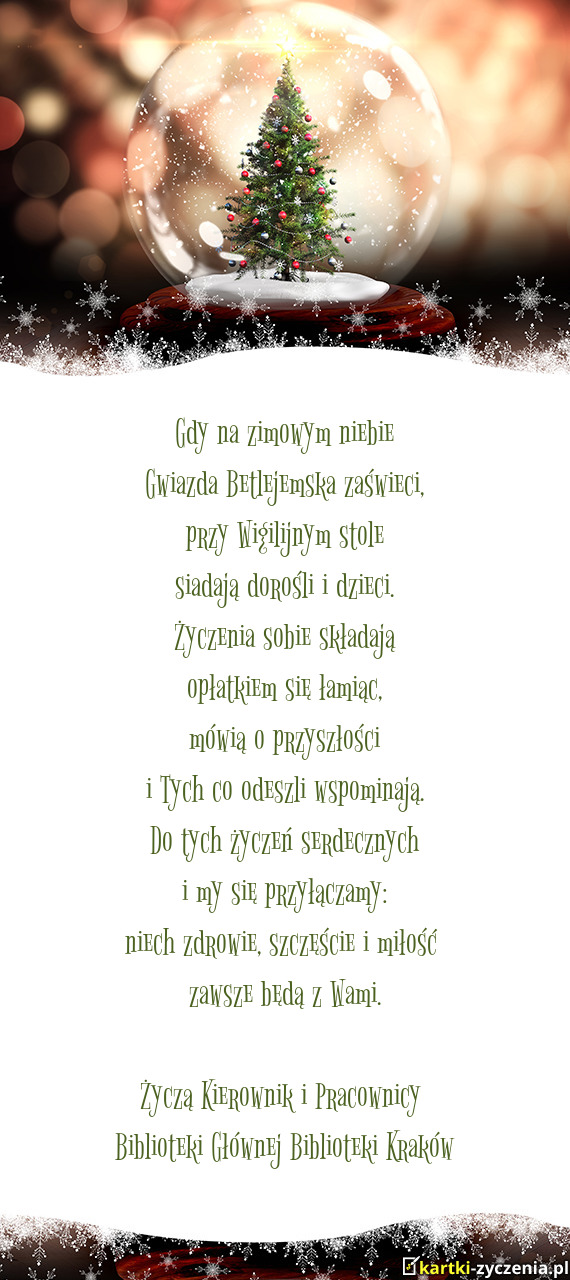 Gdy na zimowym niebie
Gwiazda Betlejemska zaświeci,
przy Wigilijnym stole
siadają dorośli i dzieci.
Życzenia sobie składają
opłatkiem się łamiąc,
mówią o przyszłości
i Tych co odeszli wspominają.
Do tych życzeń serdecznych
i my się przyłączamy:
niech zdrowie, szczęście i miłość
zawsze będą z Wami.
Życzą Kierownik i Pracownicy
Biblioteki Głównej Biblioteki Kraków
kartki-zyczenia.pl